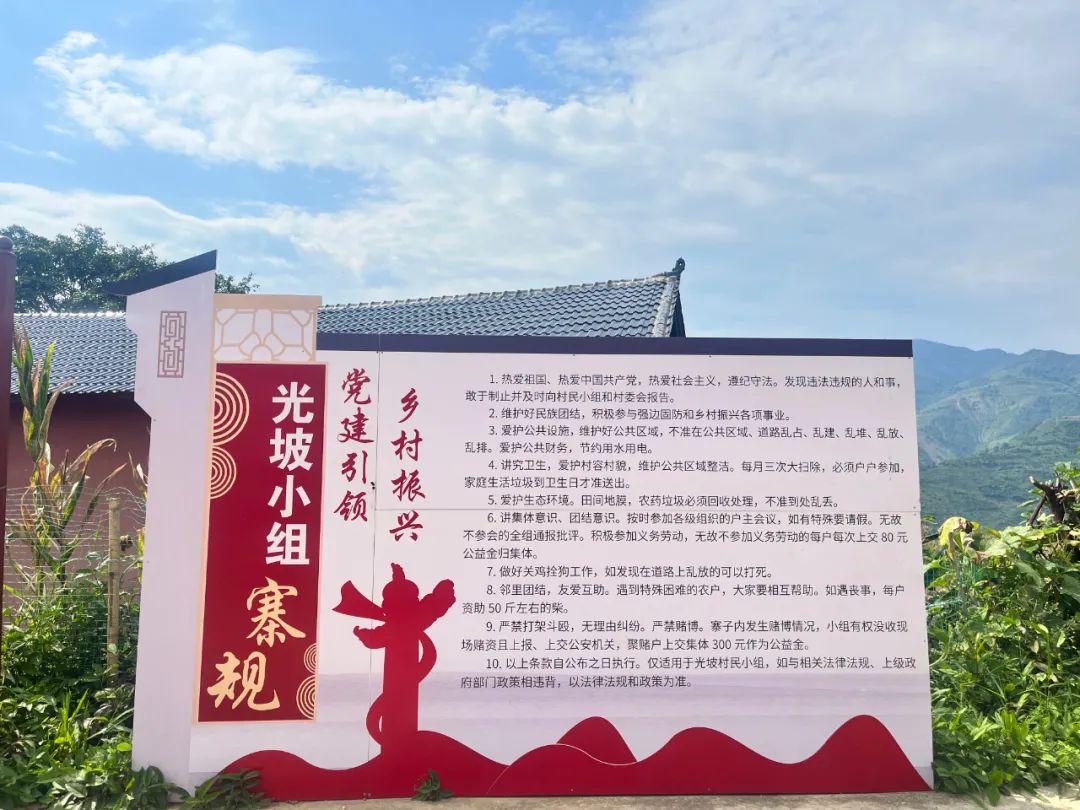 光坡小组
寨规
党建引领
乡村振兴
1. 热爱祖国、热爱中国共产党，热爱社会主义，遵纪守法。发现违法违规的人和事，
敢于制止并及时向村民小组和村委会报告。
2. 维护好民族团结，积极参与强边固防和乡村振兴各项事业。
3. 爱护公共设施，维护好公共区域，不准在公共区域、道路乱占、乱建、乱堆、乱放、
乱排。爱护公共财务，节约用水用电。
4. 讲究卫生，爱护村容村貌，维护公共区域整洁。每月三次大扫除，必须户户参加，
家庭生活垃圾到卫生日才准送出。
5. 爱护生态环境。田间地膜，农药垃圾必须回收处理，不准到处乱丢。
6. 讲集体意识、团结意识。按时参加各级组织的户主会议，如有特殊要请假。无故
不参会的全组通报批评。积极参加义务劳动，无故不参加义务劳动的每户每次上交 80 元
公益金归集体。
7. 做好关鸡拴狗工作，如发现在道路上乱放的可以打死。
8. 邻里团结，友爱互助。遇到特殊困难的农户，大家要相互帮助。如遇丧事，每户
资助 50 斤左右的柴。
9. 严禁打架斗殴，无理由纠纷。严禁赌博。寨子内发生赌博情况，小组有权没收现
场赌资且上报、上交公安机关，聚赌户上交集体 300 元作为公益金。
10. 以上条款自公布之日执行。仅适用于光坡村民小组，如与相关法律法规、上级政
府部门政策相违背，以法律法规和政策为准。